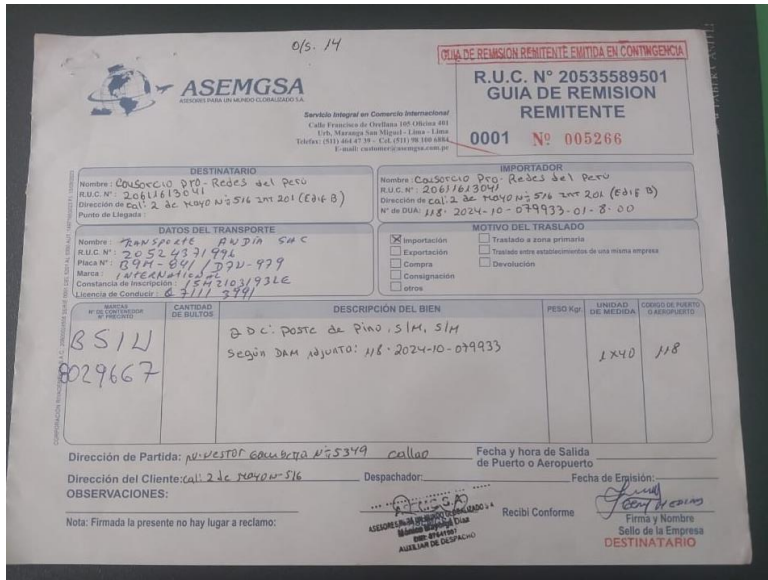 O/S. 14
GUIA DE REMISION REMITENTE EMITIDA EN CONTINGENCIA
ASEMGSA
ASESORES PARA UN MUNDO GLOBALIZADO S.A.
R.U.C. N° 20535589501
GUIA DE REMISION
REMITENTE
0001 Nº 005266
Servicio Integral en Comercio Internacional
Calle Francisco de Orellana 105 Oficina 401
Urb. Maranga San Miguel - Lima - Lima
Telefax: (511) 464 47 39 - Cel. (511) 98 100 6884
E-mail: customer@asemgsa.com.pe
DESTINATARIO
Nombre: Consorcio Pro-Redes del Perú
R.U.C. N°: 20611613041
Dirección de cal: 2 de Mayo Nº 516 Int 201 (Edif B)
Punto de Llegada:
IMPORTADOR
Nombre: Consorcio Pro-Redes del Perú
R.U.C. N°: 20611613041
Dirección de cal: 2 de Mayo Nº 516 Int 201 (Edif B)
N° de DUA: 118-2024-10-079933-01-8-00
DATOS DEL TRANSPORTE
Nombre: TRANSPORTE ANDIA SAC
R.U.C. N°: 20524371496
Placa N°: B9M-841 / D7U-979
Marca: INTERNATIONAL
Constancia de Inscripción: 15M21031932E
Licencia de Conducir: Q 7111 3991
MOTIVO DEL TRASLADO
X Importación
Exportación
Compra
Consignación
otros
Traslado a zona primaria
Traslado entre establecimientos de una misma empresa
Devolución
MARCAS
N° DE CONTENEDOR
N° PRECINTO
CANTIDAD
DE BULTOS
DESCRIPCIÓN DEL BIEN
PESO Kgr.
UNIDAD
DE MEDIDA
CODIGO DE PUERTO
O AEROPUERTO
BSIU
8029667
Poste de Pino, S/M, S/M
Según DAM adjunto: 118-2024-10-079933
1x40
118
Dirección de Partida: Nº 5349 Callao
Fecha y hora de Salida
de Puerto o Aeropuerto
Dirección del Cliente: cal: 2 de Mayo Nº 516
Despachador:
Fecha de Emisión:
OBSERVACIONES:
Nota: Firmada la presente no hay lugar a reclamo:
ASESORES PARA UN MUNDO GLOBALIZADO S.A.
AUXILIAR DE DESPACHO
Recibi Conforme
Firma y Nombre
Sello de la Empresa
DESTINATARIO